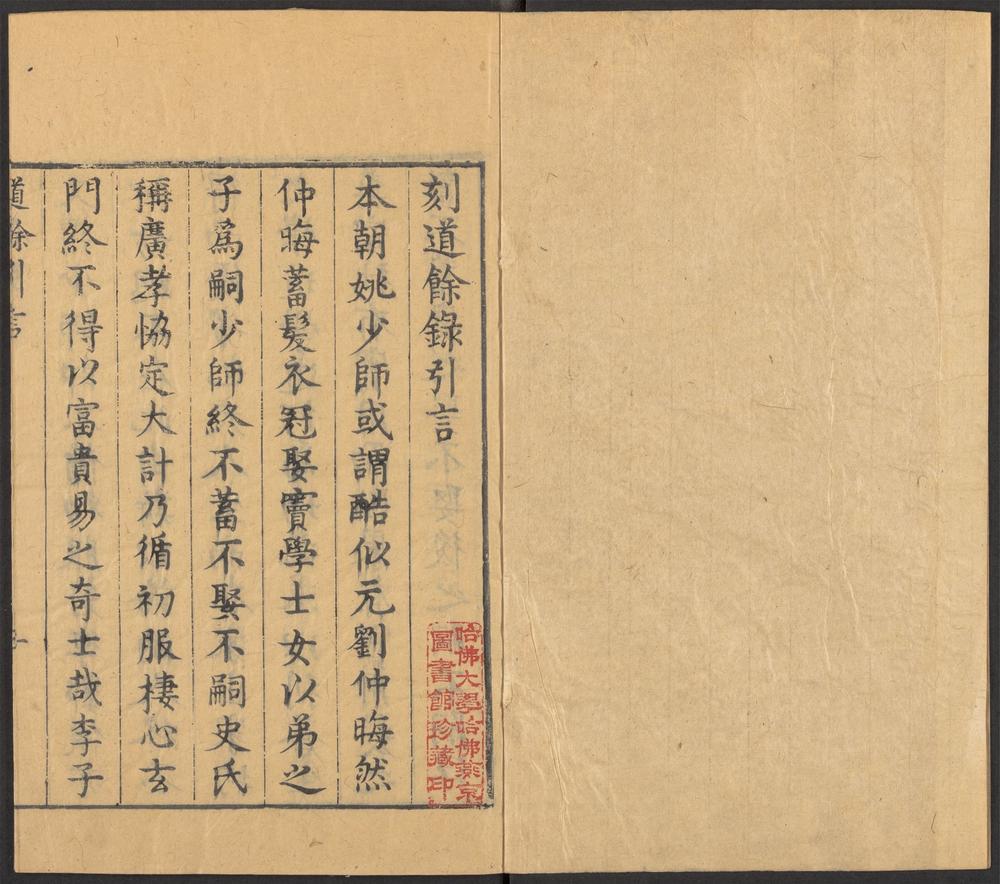 刻道餘錄引言
本朝姚少師或謂酷似元劉仲晦然
仲晦蓄髮衣冠娶竇學士女以弟之
子爲嗣少師終不蓄不娶不嗣史氏
稱廣孝恊定大計乃循初服棲心玄
門終不得以富貴易之奇士哉李子
道餘引言
哈佛大學哈佛燕京
圖書館珍藏印